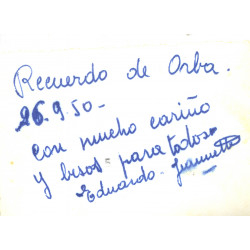 Recuerdo de Orba.
26.9.50-
con mucho cariño
y besos para todos
Eduardo- Jeannette